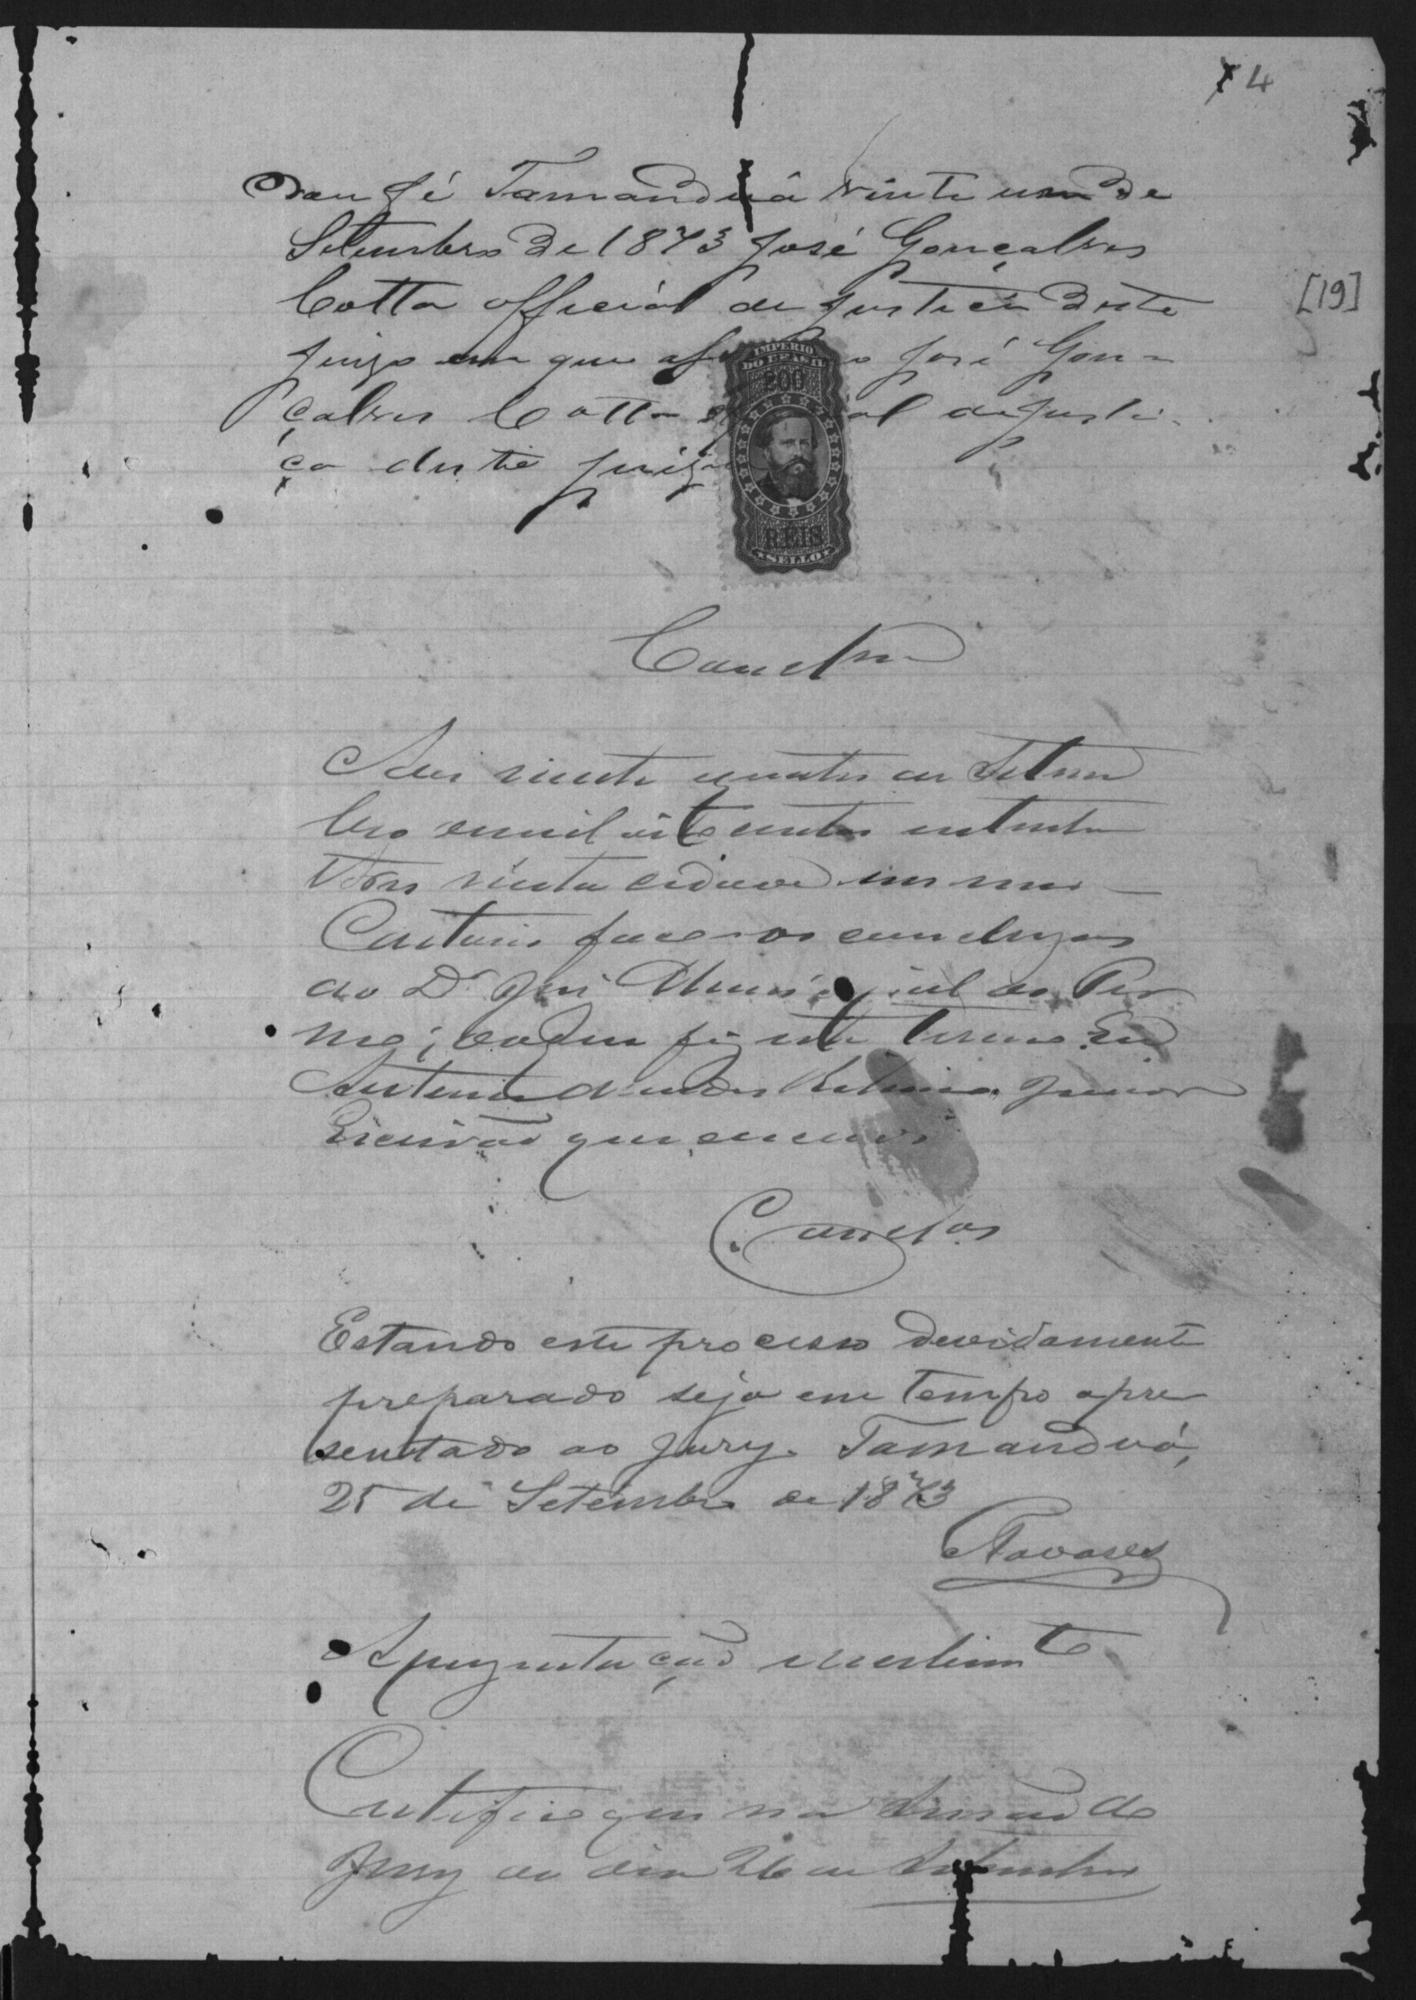 4
Dou fé Tamanduá vinte um de
Setembro de 1873 José Gonçalves
Cotta official de justiça deste
juizo em que José Gon-
çalves Cotta al de justi-
ça deste juizo
[19]
IMPERIO
DO BRASIL
200
REIS
SELLO
Conclm
Aos vinte quatro de Setem
bro de mil oito centos e setenta
tres nesta cidade em meu
Cartorio faço os conclusos
ao Dr José
; do que fiz este termo Eu
Antonio Mendes Junior
Escrivão que escrevi
Conclos
Estando este processo devidamente
preparado seja em tempo apre
sentado ao Jury. Tamanduá,
25 de Setembro de 1873
Tavares
Apresentação
Certifico que na sessão do
Jury do dia 26 de Setembro